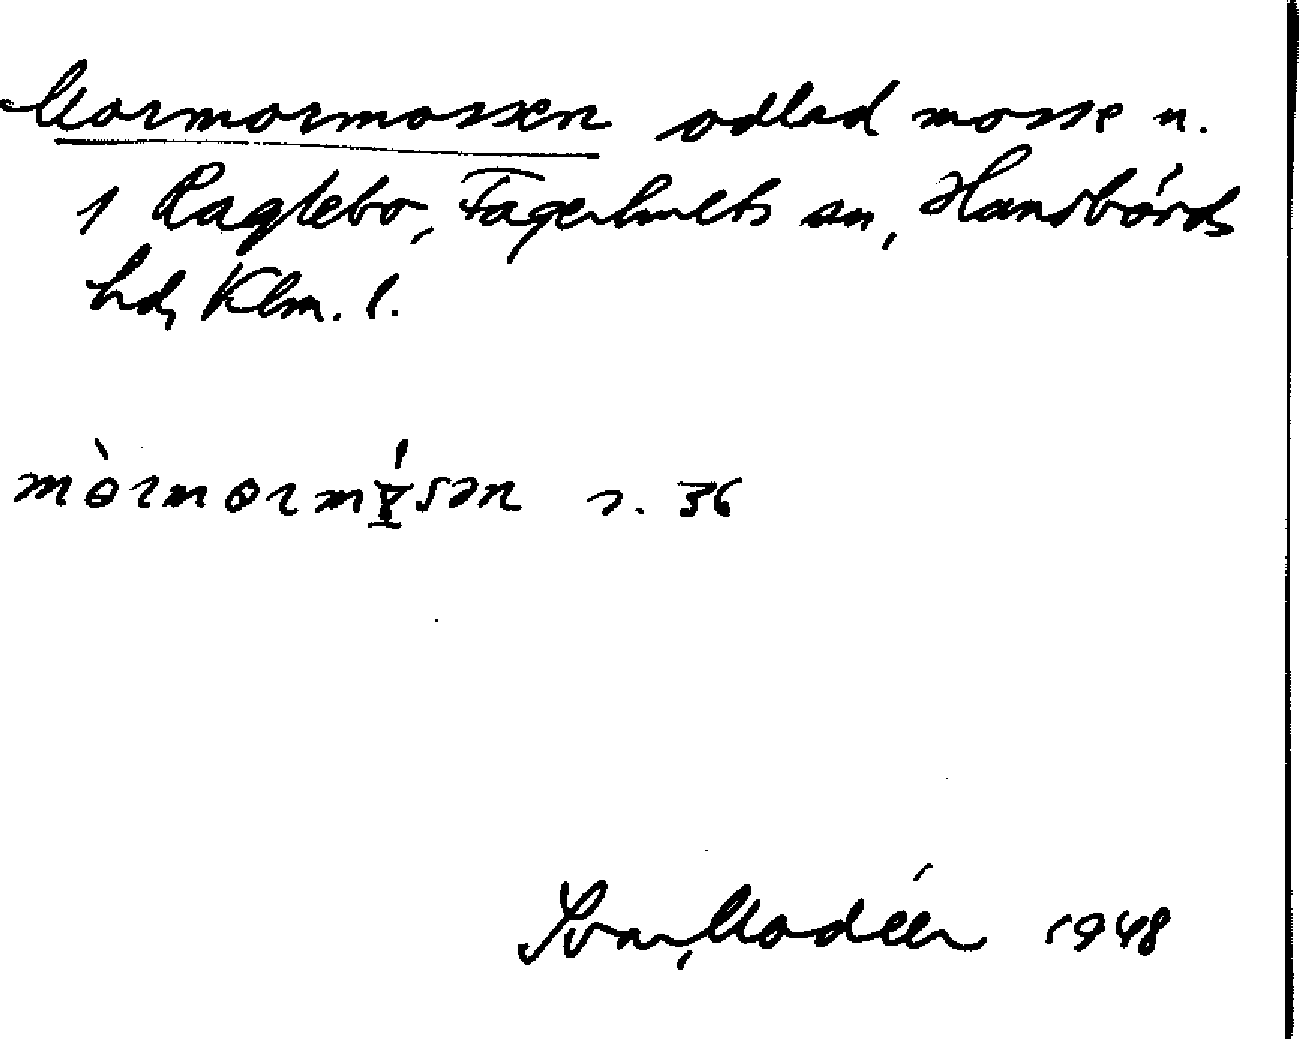 Mormormossen odlad mosse n.
1 Raglebo, Fagerhults sn, Handbörds
hd, Klm. l.
mòrmormɣ́sən s. 36
Ivar Modéer 1948